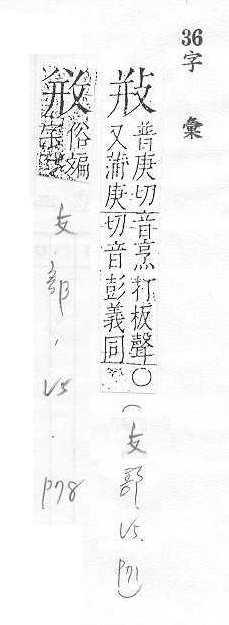 36字 彙
普庚切音烹打板聲○
又蒲庚切音彭義同
(攴部 V5. P71)
俗
字
攴部, V5. P78